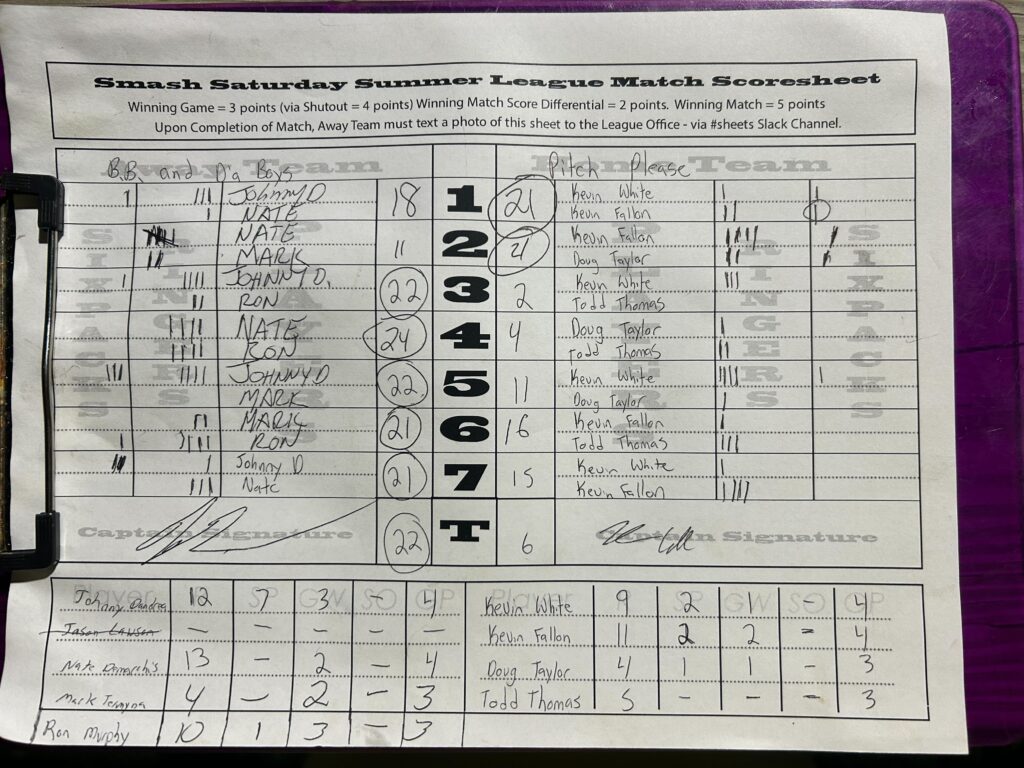 Smash Saturday Summer League Match Scoresheet
Winning Game = 3 points (via Shutout = 4 points) Winning Match Score Differential = 2 points. Winning Match = 5 points
Upon Completion of Match, Away Team must text a photo of this sheet to the League Office - via #sheets Slack Channel.
Away Team Home Team
B.B. and Da Boys Pitch Please
SIXPACKS RINGERS PLAYERS PLAYERS RINGERS SIXPACKS
Johnny D 18 1 21 Kevin White
NATE Kevin Fallon
NATE 11 2 21 Kevin Fallon
MARK Doug Taylor
JOHNNY D. 22 3 2 Kevin White
RON Todd Thomas
NATE 24 4 4 Doug Taylor
RON Todd Thomas
JOHNNY D 22 5 11 Kevin White
MARK Doug Taylor
MARK 21 6 16 Kevin Fallon
RON Todd Thomas
Johnny D 21 7 15 Kevin White
Nate Kevin Fallon
Captain Signature 22 T 6 Captain Signature
Player SP GW SO GP Player SP GW SO GP
Johnny 12 7 3 - 4 Kevin White 9 2 1 - 4
Jason Lawson - - - - - Kevin Fallon 11 2 2 - 4
Nate 13 - 2 - 4 Doug Taylor 4 1 1 - 3
Mark 4 - 2 - 3 Todd Thomas 5 - - - 3
Ron Murphy 10 1 3 - 3